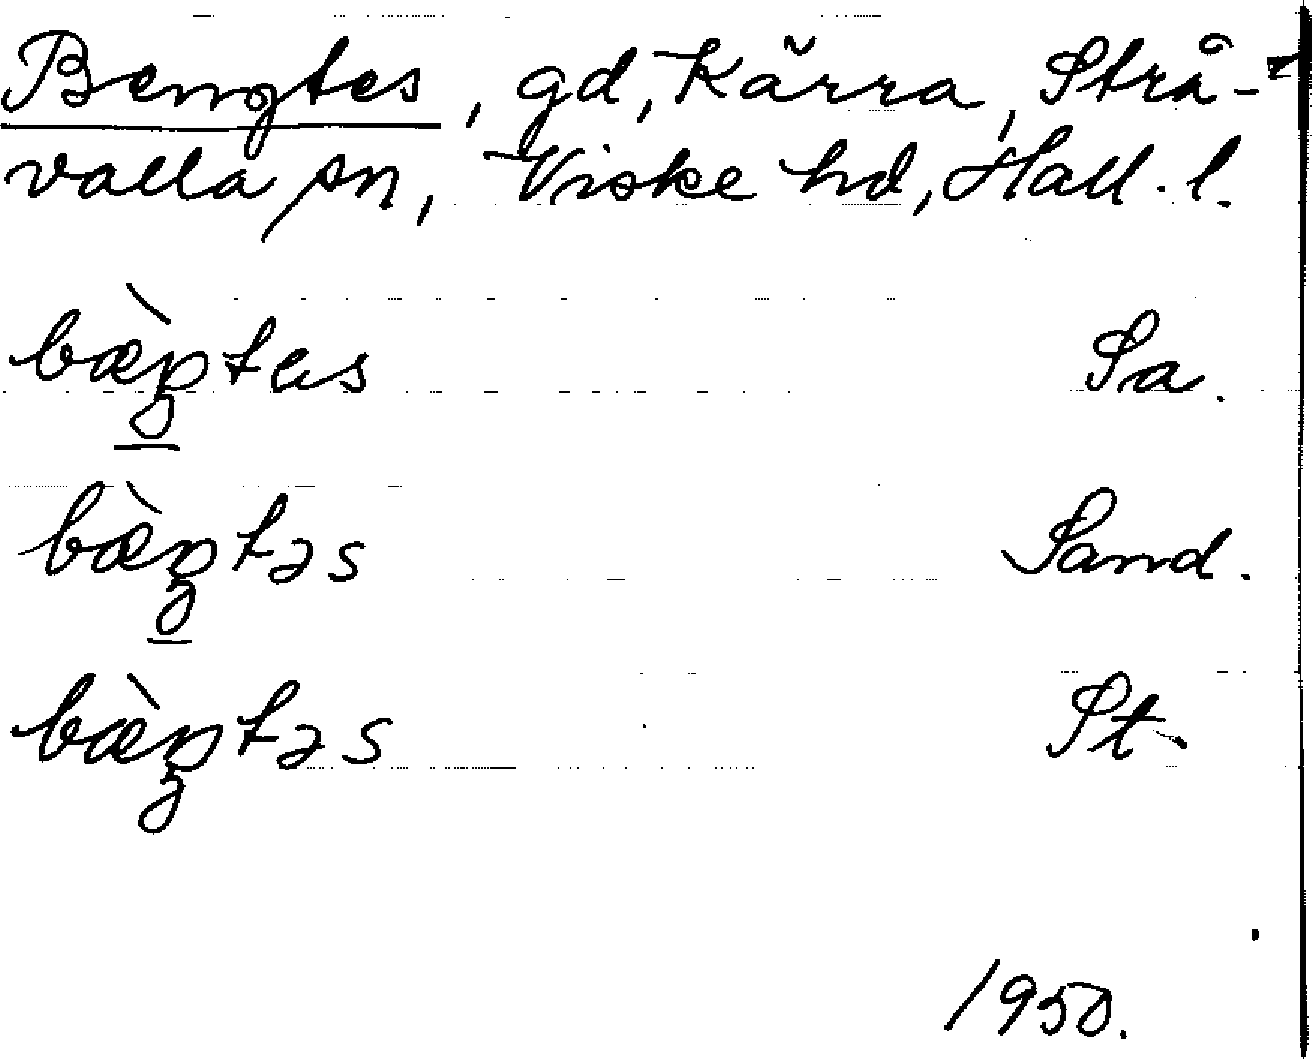 Bengtes, gd, Kärra, Strå-
valla sn, Viske hd, Hall. l.
bæ̀ŋtɐs Sa.
bæ̀ŋtəs Sand.
bæ̀ŋtəs St.
1950.